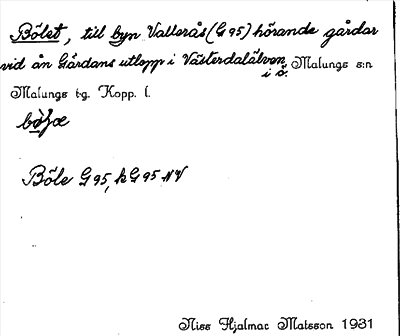 Bölet, till byn Vallerås (G 95) hörande gårdar
vid ån Gårdans utlopp i Västerdalälven,
i ö. Malungs s:n
Malungs tg. Kopp. l.
Böle G 95, k G 95 NV
Niss Hjalmar Matsson 1931